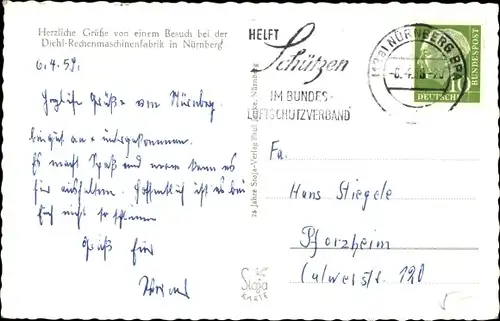 Herzliche Grüße von einem Besuch bei der
Diehl-Rechenmaschinenfabrik in Nürnberg!
6.4.59.
Herzliche Grüße vom Nürnberg
bin gut an
Es macht Spaß und man kann es
für aushalten. Hoffentlich ist es bei
Euch nicht so schlimm
Gruß für
HELFT
Schützen
IM BUNDES-
LUFTSCHUTZVERBAND
(13a) NÜRNBERG BPA
DEUTSCHE BUNDESPOST
10
25 Jahre Stoja-Verlag Paul Janke, Nürnberg
Fa.
Hans Stiegele
Pforzheim
Calwerstr. 120
Stoja
5-